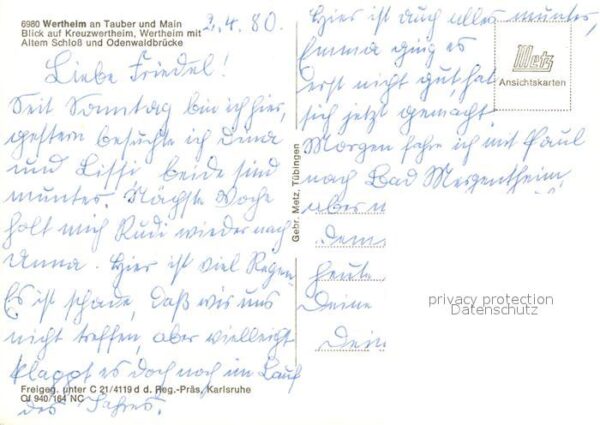 6980 Wertheim an Tauber und Main
Blick auf Kreuzwertheim, Wertheim mit
Altem Schloß und Odenwaldbrücke
2.4.80.
Liebe Friedel!
Seit Sonntag bin ich hier,
gestern besuchte ich
und Lissi beide sind
munter. Nächste Woche
holt mich Rudi wieder nach
Anna. Hier ist viel Regen
Es ist schade, daß wir uns
nicht treffen, aber vielleicht
klappt es doch noch im Lauf
des Jahres.
Freigeg. unter C 21/4119 d d. Reg.-Präs, Karlsruhe
QJ 940/164 NC
Gebr. Metz, Tübingen
Hier ist auch alles munter,
Emma ging es
erst nicht gut, hat
sich jetzt gemacht.
Morgen fahre ich mit Paul
nach Bad Mergentheim,
aber
heute
Deine
Metz
Ansichtskarten
privacy protection
Datenschutz